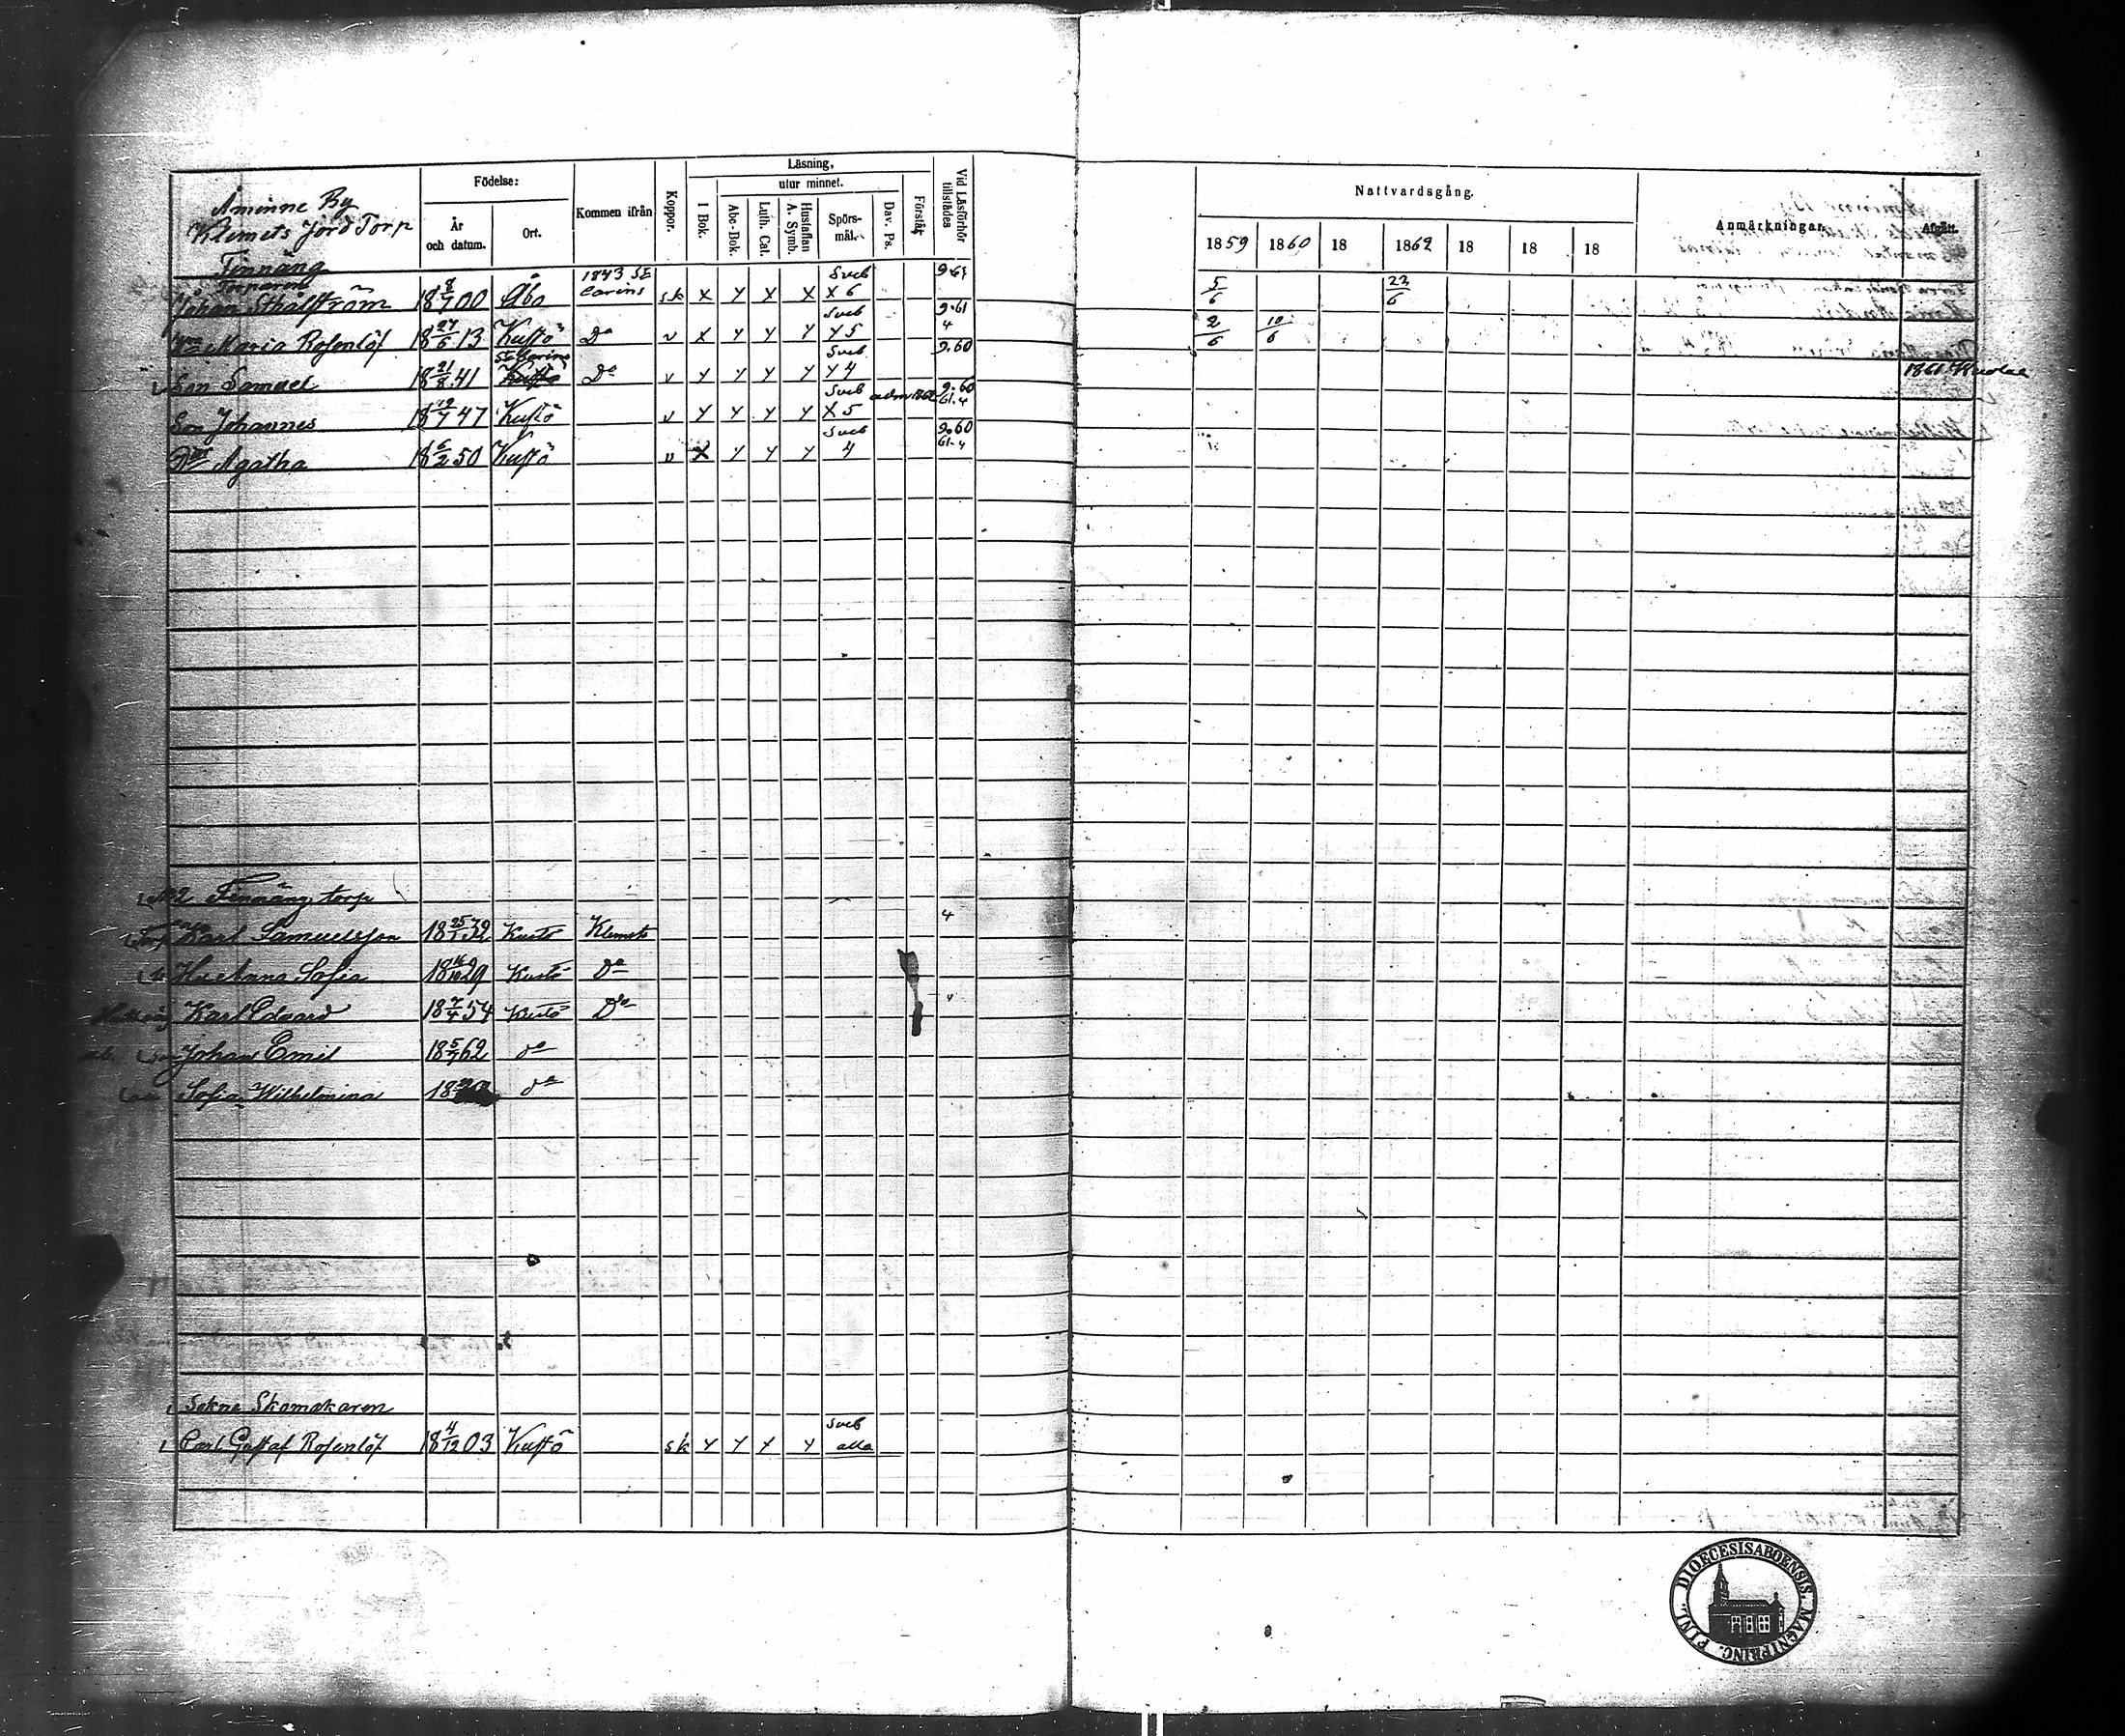 Åminne By
Klemets Jord Torp
Födelse:
År och datum.
Ort.
Kommen ifrån
Koppor.
Läsning,
I Bok.
utur minnet.
Abc-Bok.
Luth. Cat.
Hustaflan A. Symb.
Spörs-mål.
Dav. Ps.
Förstår
Vid Läsförhör tillstädes
Nattvardsgång.
1859 1860 18 1862 18 18 18
Anmärkningar.
Afgått.
Finnäng
Torparen 1843 St Sveb 9.61
Johan Sthålström 18 8/7 00 Åbo Carins sk x y x x x 6 5/6 23/6
Sveb 9.61
Maria Rosenlöf 18 27/6 13 Kustö Do v x y y y y 5 4 2/6 10/6
St Carins Sveb 9.60
Son Samuel 18 21/8 41 Kustö Do v y y y y y 4 1861
Sveb adm 1862 9.60
Son Johannes 18 19/7 47 Kustö v y y y y x 5 61.4
Sveb 9.60
Agatha 18 6/2 50 Kustö v x y y y 4 61.4
2 Finnäng torp
Torp Karl Samuelsson 18 25/1 32 Kustö Klemets 4
Hu Anna Sofia 18 29 Kustö Do
Karl Edvard 18 7/4 54 Kustö Do 4
Johan Emil 18 5/7 62 do
Sofia Wilhelmina 18 do
Sokne Skomakaren Sveb
Carl Gustaf Rosenlöf 18 4/12 03 Kustö sk y y x y alla
DIOECESIS ABOENSIS. MAGNI PRINC. FINL.